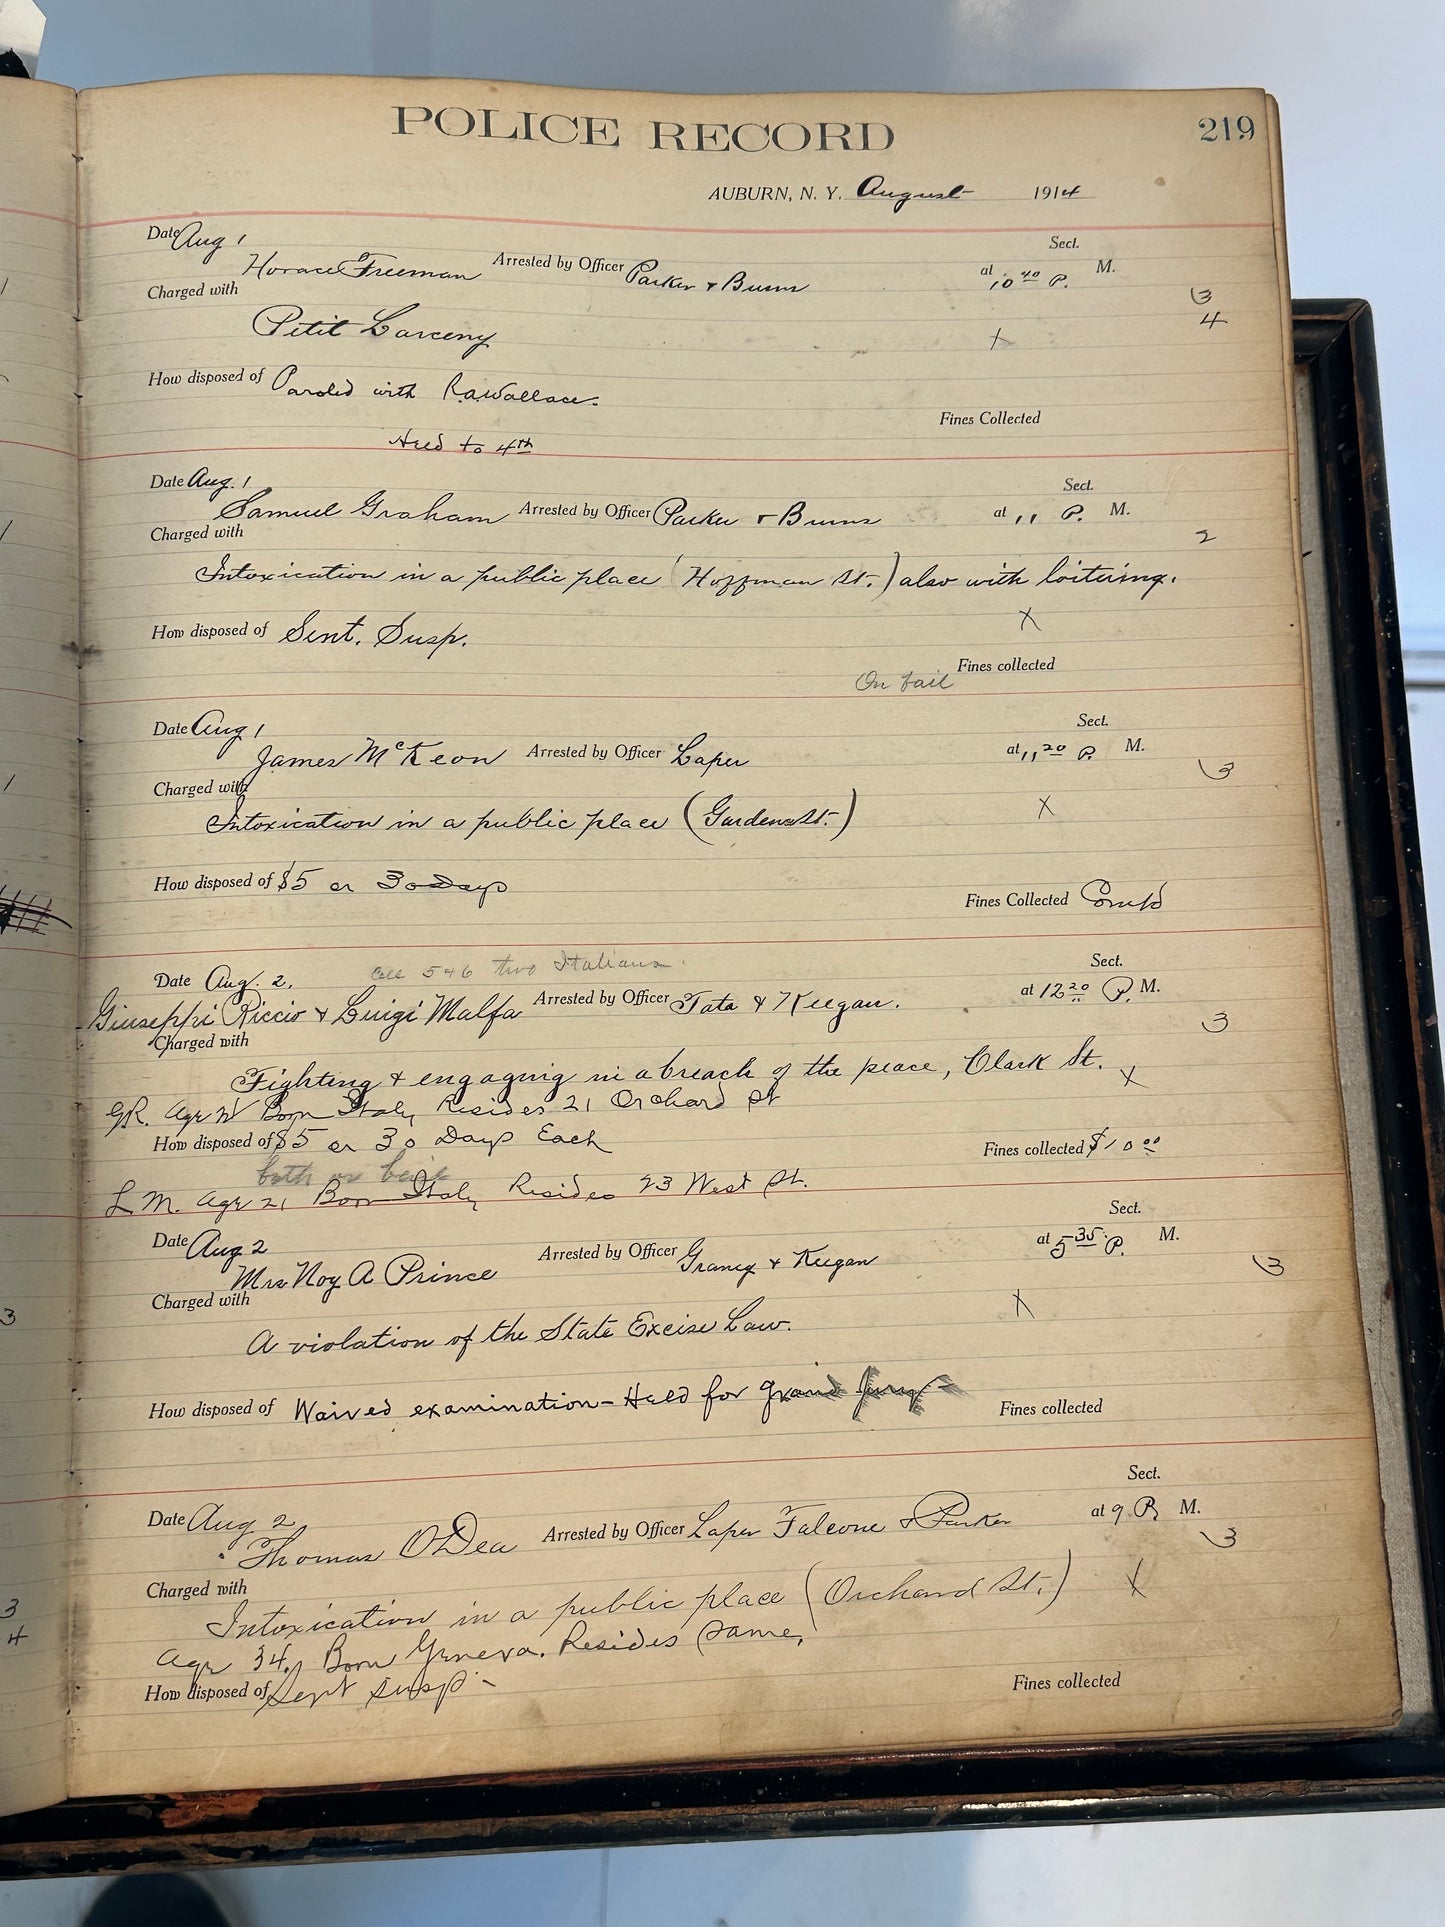 POLICE RECORD 219
AUBURN, N. Y. August 1914
Date Aug 1 Sect.
Horace Freeman Arrested by Officer Parker & Burns at 10 40 P. M.
Charged with 3
Petit Larceny X 4
How disposed of Paroled with R.A. Wallace.
Fines Collected
Held to 4th
Date Aug. 1 Sect.
Samuel Graham Arrested by Officer Parker & Burns at 11 P. M.
Charged with 2
Intoxication in a public place (Hoffman St.) also with loitering.
How disposed of Sent. Susp. X
Fines collected
On bail
Date Aug 1 Sect.
James McKeon Arrested by Officer Laper at 11 20 P. M.
Charged with 3
Intoxication in a public place (Garden St.) X
How disposed of $5 or 30 Days
Fines Collected Com'td
Date Aug. 2. two Italians Sect.
Giuseppi Riccio & Luigi Malfa Arrested by Officer Tata & Keegan. at 12 20 P. M.
Charged with 3
Fighting & engaging in a breach of the peace, Clark St. X
G.R. Age Born Italy Resides 21 Orchard St
How disposed of $5 or 30 Days Each Fines collected $10 00
both on bail
L M. Age 21 Born Italy Resides 23 West St.
Sect.
Date Aug 2 Arrested by Officer Graney & Keegan at 5 35 P. M.
Mrs Noy A Prince 3
Charged with X
A violation of the State Excise Law.
How disposed of Waived examination - Held for Grand Jury - Fines collected
Sect.
Date Aug 2 Arrested by Officer Laper Falcone & Parker at 9 P. M.
Thomas O'Dea 3
Charged with
Intoxication in a public place (Orchard St.) X
Age 34. Born Geneva. Resides Same.
How disposed of Sent susp - Fines collected
3
3
4